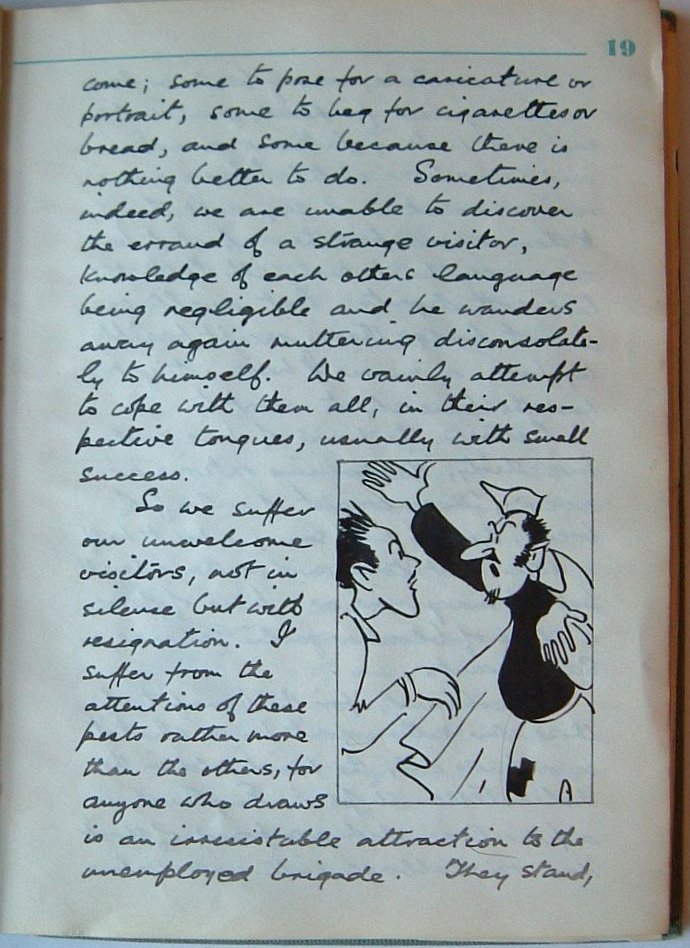 19
come; some to pose for a caricature or
portrait, some to beg for cigarettes or
bread, and some because there is
nothing better to do. Sometimes,
indeed, we are unable to discover
the errand of a strange visitor,
knowledge of each others language
being negligible and he wanders
away again muttering disconsolate-
ly to himself. We vainly attempt
to cope with them all, in their res-
pective tongues, usually with small
success.
So we suffer
our unwelcome
visitors, not in
silence but with
resignation. I
suffer from the
attentions of these
pests rather more
than the others, for
anyone who draws
is an irresistable attraction to the
unemployed brigade. They stand,
A